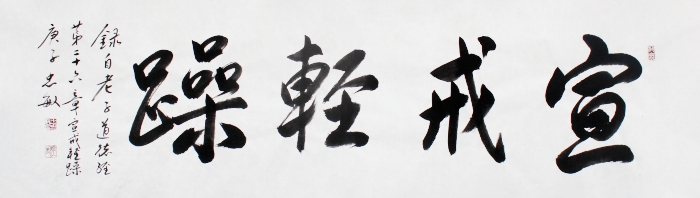 宣戒輕躁
錄自老子道德經
第二十六章宣戒輕躁
庚子忠敏